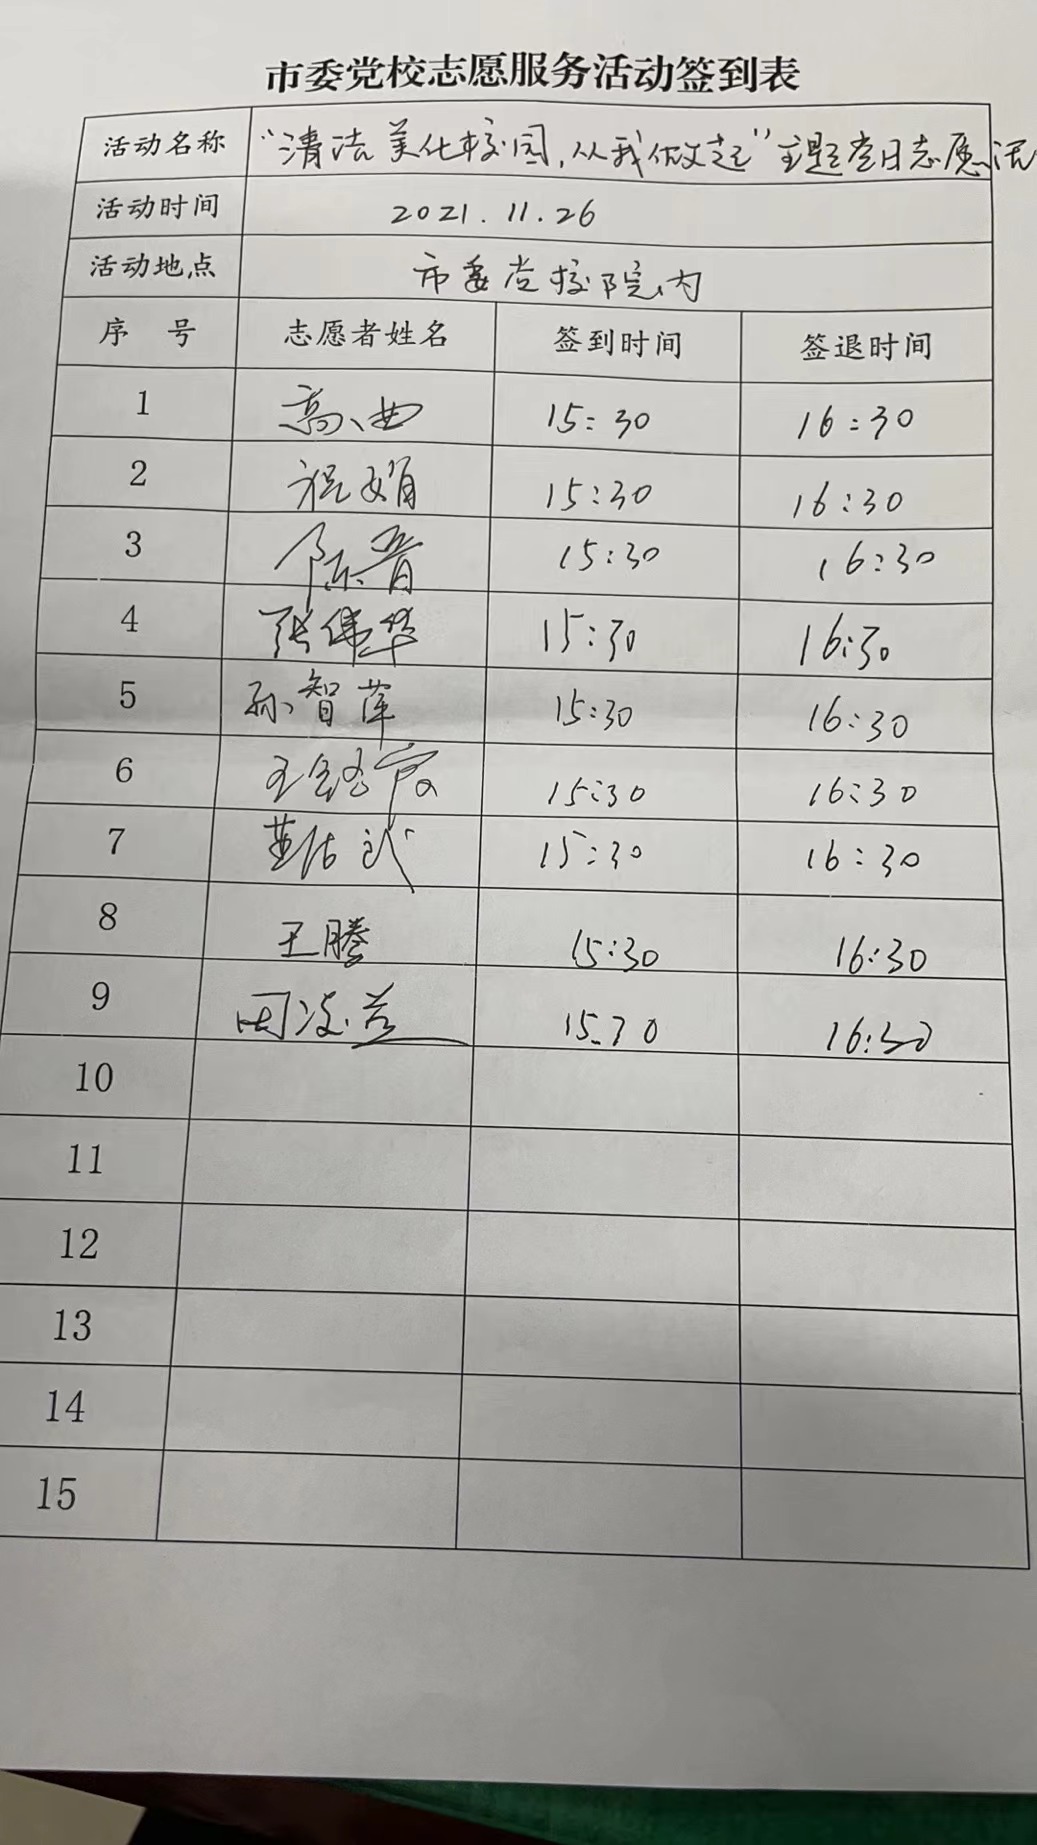 市委党校志愿服务活动签到表
活动名称 "清洁美化校园,从我做起"主题党日志愿活
活动时间 2021.11.26
活动地点 市委党校院内
序 号 志愿者姓名 签到时间 签退时间
1 高曲 15:30 16:30
2 祝娟 15:30 16:30
3 陈晋 15:30 16:30
4 张伟华 15:30 16:30
5 孙智萍 15:30 16:30
6 15:30 16:30
7 15:30 16:30
8 王腾 15:30 16:30
9 周凌 15.30 16:30
10
11
12
13
14
15